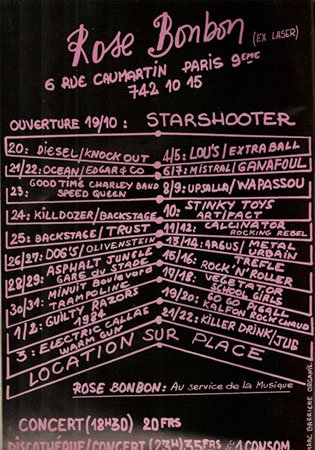 Rose Bonbon (EX LASER)
6 RUE CAUMARTIN PARIS 9EME
742 10 15
OUVERTURE 19/10 : STARSHOOTER
20: DIESEL/KNOCK OUT
21/22: OCEAN/EDGAR & CO
23: GOOD TIME CHARLEY BAND
SPEED QUEEN
24: KILLDOZER/BACKSTAGE
25: BACKSTAGE / TRUST
26/27: DOG'S/OLIVENSTEIN
28/29: ASPHALT JUNGLE
GARE du STADE
30/31: MINUIT Boulevard
TRAMPOLINE
1/2: GUILTY RAZORS
1984
3: ELECTRIC CALLAS
WARM GUN
4/5: LOU'S/EXTRA BALL
6/7: MISTRAL/GANAFOUL
8/9: UPSALLA/WAPASSOU
10: STINKY TOYS
ARTIFACT
11/12: CALCINATOR
ROCKING REBEL
13/14: ARGUS/METAL
URBAIN
15/16: TREFLE
ROCK'N'ROLLER
17/18: VEGETATOR
SCHOOL GIRLS
19/20: GO GO PIGALL
KALFON ROCK CHAUD
21/22: KILLER DRINK/JUB
LOCATION SUR PLACE
ROSE BONBON: Au service de la Musique
CONCERT (18H30) 20FRS
DISCOTHÈQUE/CONCERT (23H) 35FRS & 1 CONSOM
MARC BARRIERE ORGANIS.